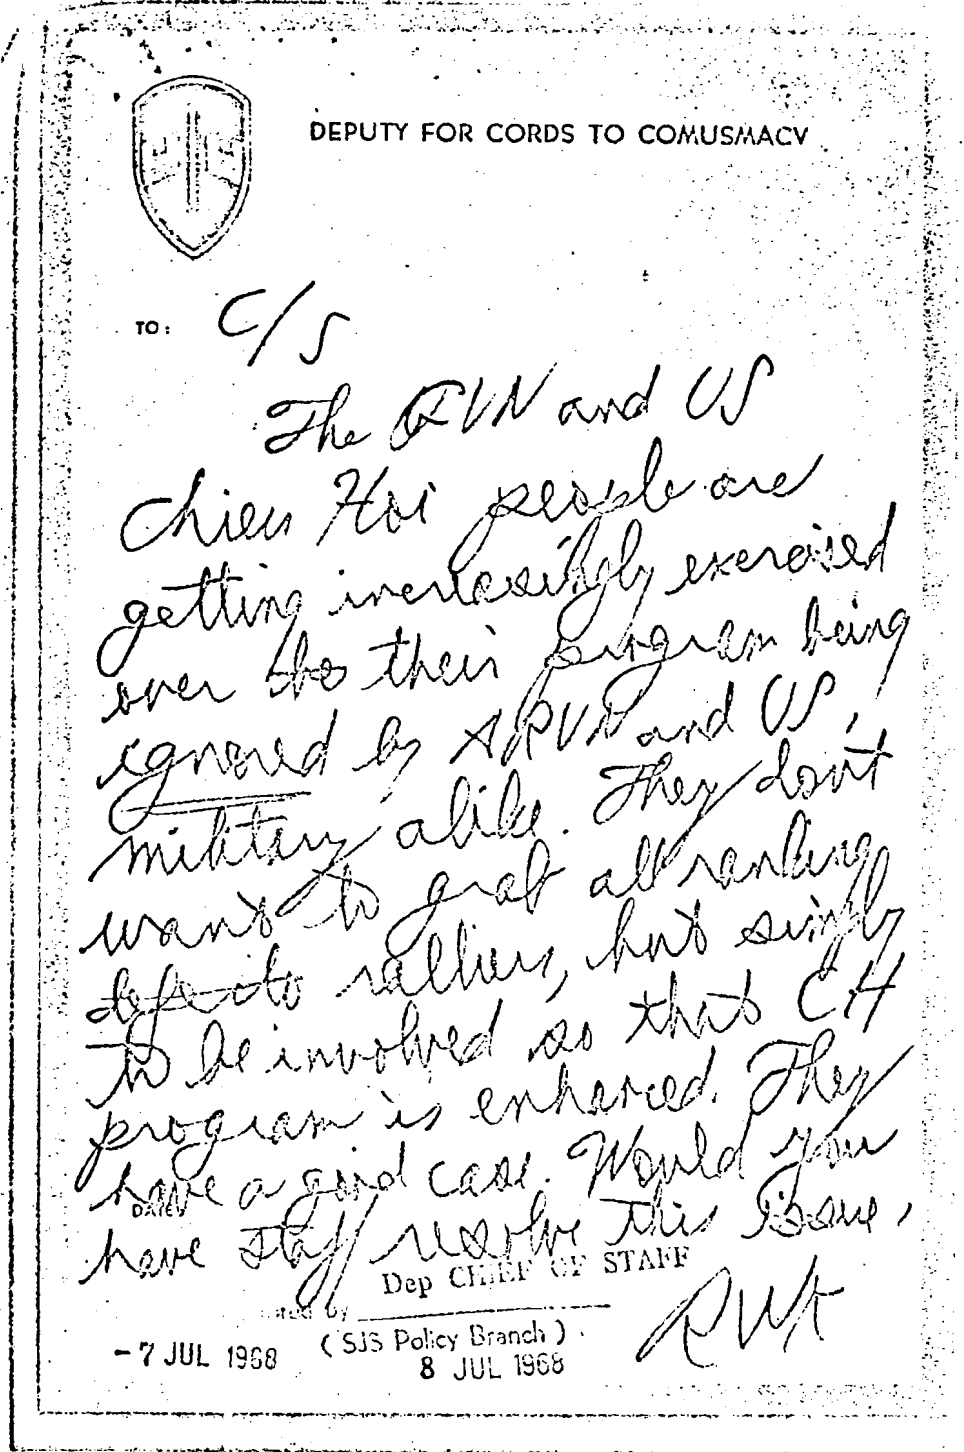 DEPUTY FOR CORDS TO COMUSMACV
TO: C/S
The GVN and US
Chieu Hoi people are
getting increasingly exercised
over their program being
ignored by ARVN and US
military alike. They don't
want to grab all ranking
defecto ralliers, but simply
to be involved so that CH
program is enhanced. They
have a good case. Would you
DATE
have staff resolve this issue.
Dep CHIEF OF STAFF
by
RWK
- 7 JUL 1968
(SJS Policy Branch)
8 JUL 1968